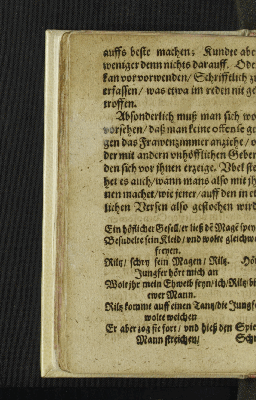 auffs beste machen; Kundet abe
weniger denn nichts darauff. Ode
kan vorvorwenden/ Schrifftlich z
erfassen/ was etwa im reden nit ge
troffen.
Absonderlich muß man sich wo
vorsehen/ daß man keine offensie ge
gen das Frawenzimmer anziehe/ v
der mit andern vnhöfflichen Geber
den sich vor jhnen erzeige. Vbel ste
het es auch/ wann mans also mit jh
nen machet/ wie jener/ auff den in et
lichen Versen also gestochen wird
Ein höflicher Gesell/ er ließ de Mage spey
Besudelte sein Kleid/ vnd wolte gleichw
freyen.
Rilz/ schry sein Magen/ Rilz. Hör
Jungfer hört mich an
Wolt jhr mein Ehweib seyn/ ich/ Rilz/ bi
ewer Mann.
Rilz kommt auff einen Tantz/ die Jungfe
wolte weichen
Er aber zog sie fort/ vnd hieß den Spie
Mann streichen/ Sch